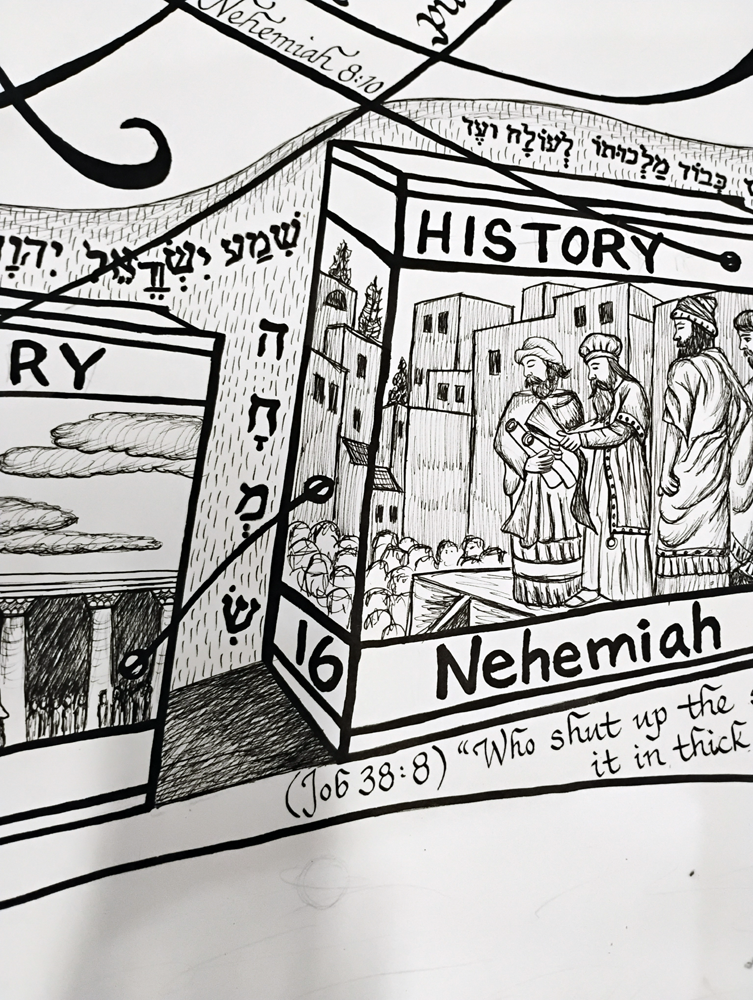 Nehemiah 8:10
כְּבוֹד מַלְכוּתוֹ לְעוֹלָם וָעֶד
שְׁמַע יִשְׂרָאֵל
HISTORY
RY
ה
חָ
מְ
שׂ
16
Nehemiah
(Job 38:8) "Who shut up the
it in thick